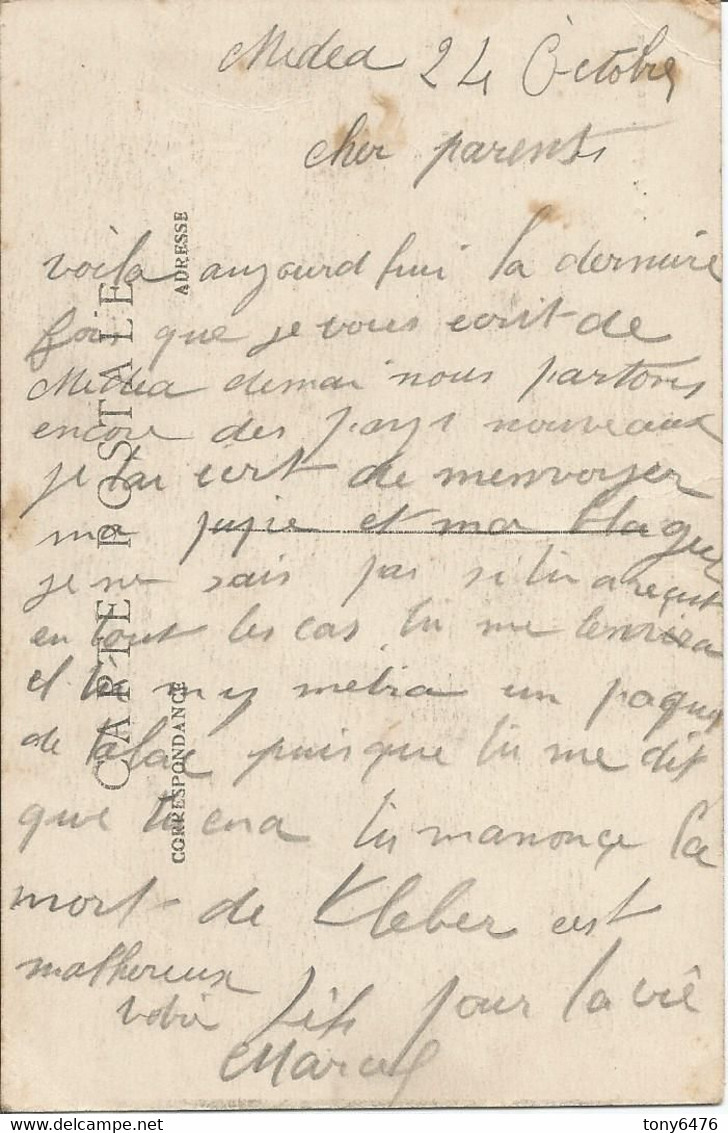 Medea 24 Octobre
cher parents
voila aujourd hui la derniere
foi que je vous ecrit de
Medea demai nous partons
encore des pays nouveaux
je tai ecrit de menvoyer
ma pipe et ma blague
je ne sais pas si tu a reçut
en tout les cas tu me lenvira
et tu my metra un paquet
de tabac puisque tu me dit
que tu ena tu manonçe la
mort de Kleber est
malhereux
votre fils pour la vie
Marcel
CARTE POSTALE
CORRESPONDANCE
ADRESSE
tony6476